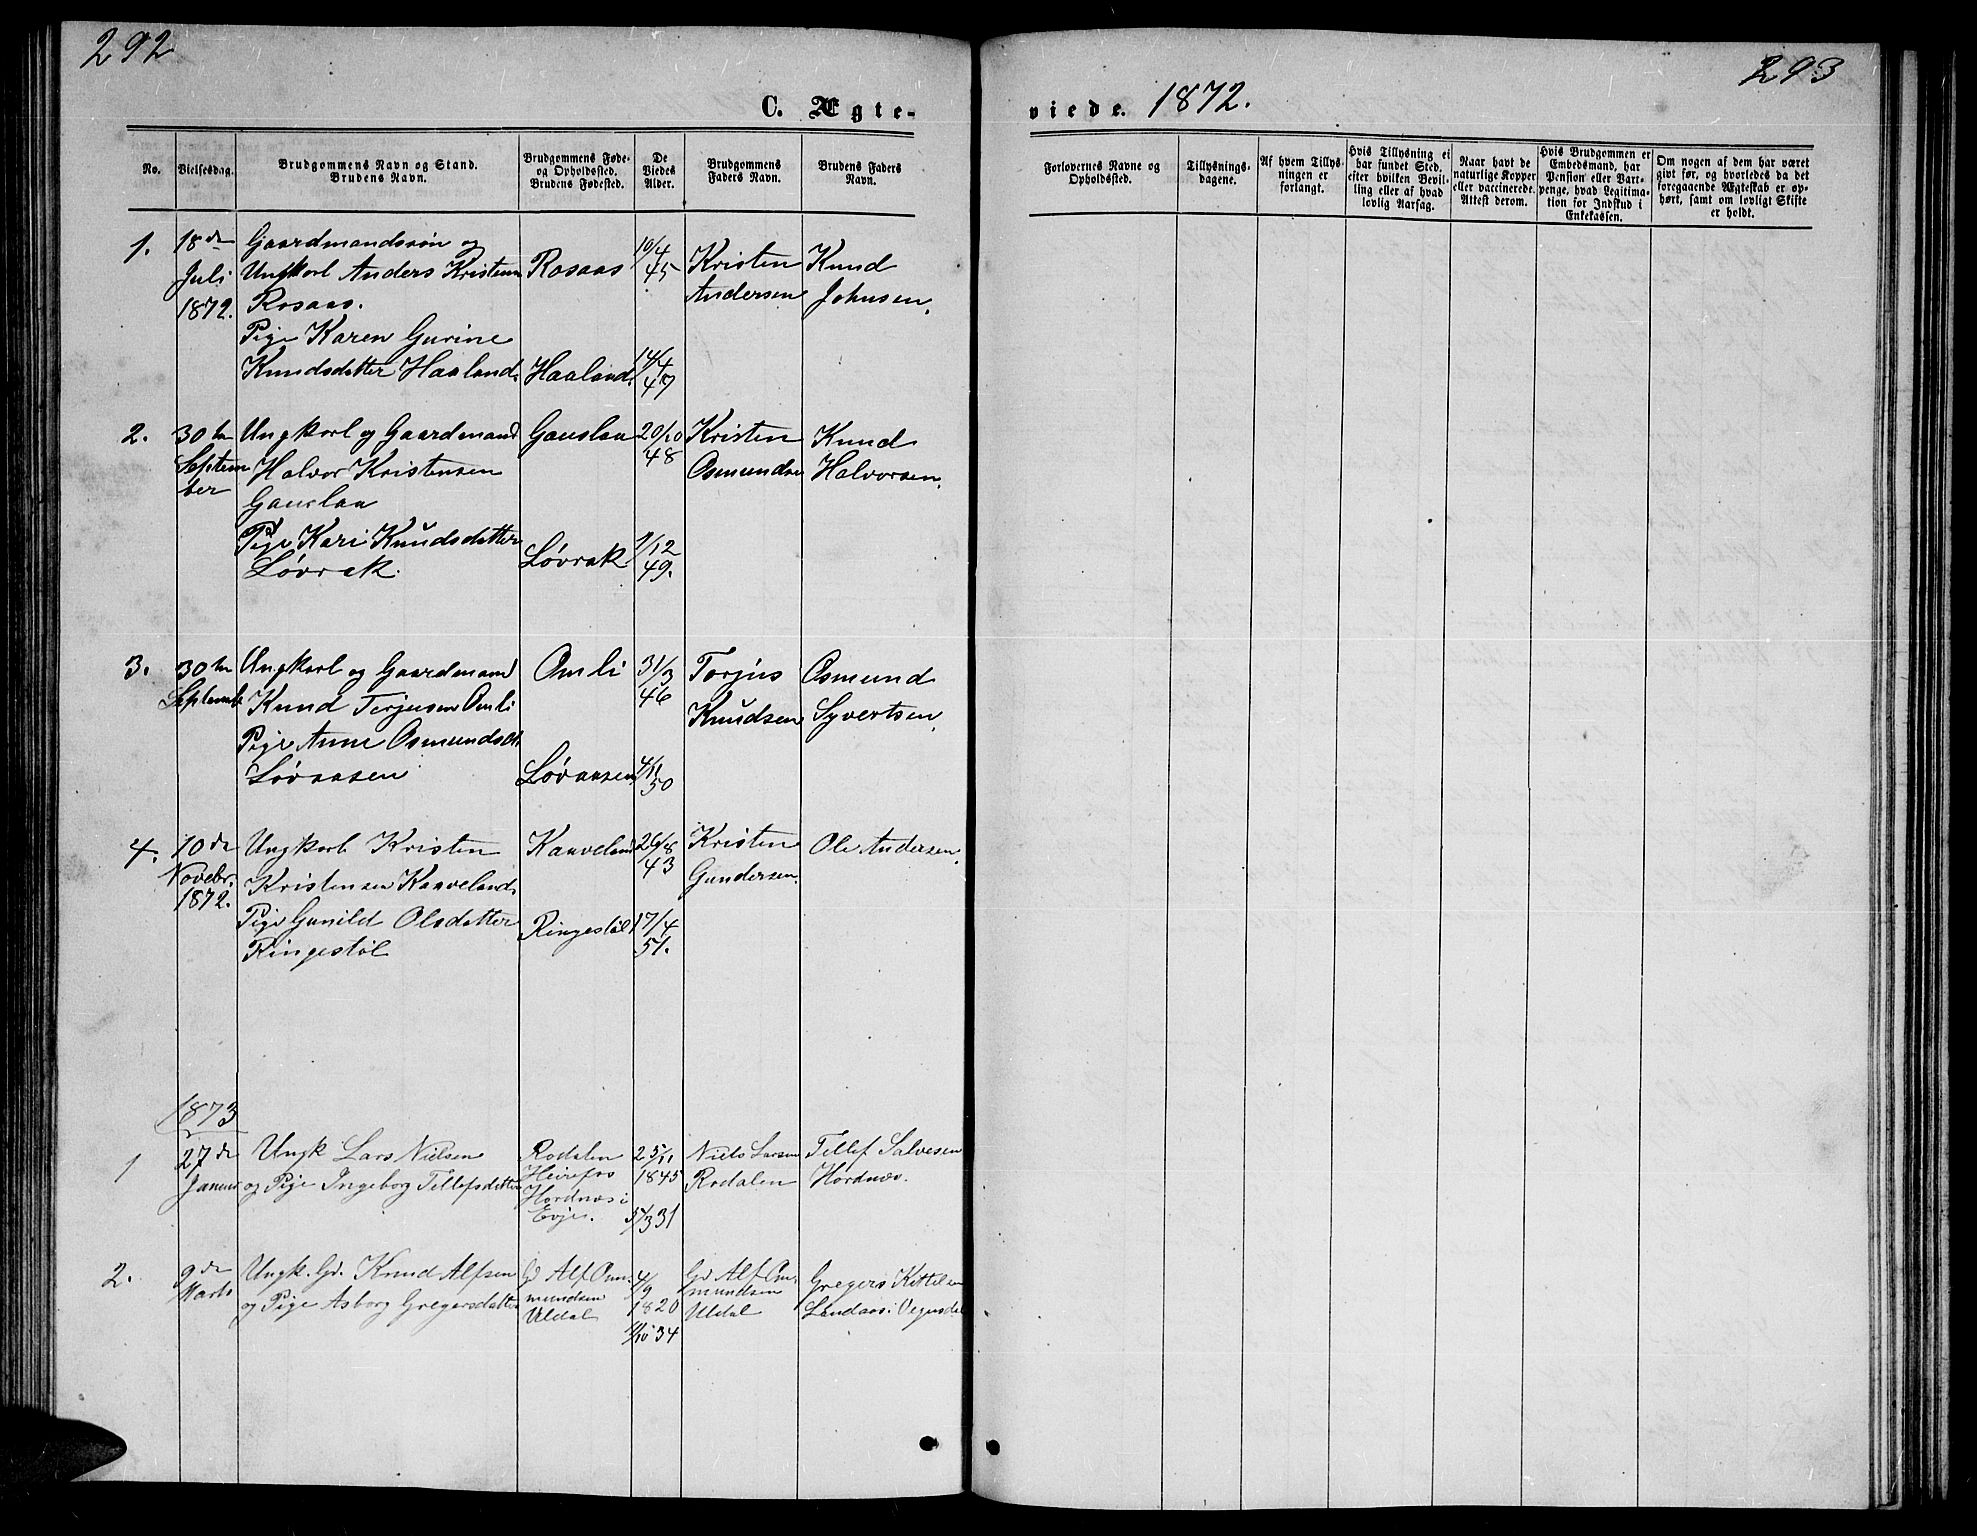 292
293
C. Ægte-
viede. 1872.
No.
Vielsesdag.
Brudgommens Navn og Stand.
Brudens Navn.
Brudgommens Føde-
og Opholdssted.
Brudens Fødested.
De
Viedes
Alder.
Brudgommens
Faders Navn.
Brudens Faders
Navn.
Forlovernes Navne og
Opholdssted.
Tillysnings-
dagene.
Af hvem Tillys-
ningen er
forlangt.
Hvis Tillysning ei
har fundet Sted,
efter hvilken Bevil-
ling eller af hvad
lovlig Aarsag.
Naar havt de
naturlige Kopper
eller vaccinerede.
Attest derom.
Hvis Brudgommen er
Embedsmand, har Vart-
Pension eller Vart-
penge, hvad Legitima-
tion for Indskud i
Enkekassen.
Om nogen af dem har været
givt før, og hvorledes da det
foregaaende Ægteskab er op-
hørt, samt om lovligt Skifte
er holdt.
1.
18de
Juli
1872.
Gaardmandssøn og
Ungkarl Anders Kristensen
Rosaas.
Pige Karen Gurine
Knudsdatter Haaland.
Rosaas
Haaland.
10/4
45
14/4
47
Kristen
Andersen
Knud
Johnsen.
2.
30te
Septem
ber
Ungkarl og Gaardmand
Halvor Kristensen
Gauslaa
Pige Kari Knudsdatter
Løvrak.
Gauslaa
Løvrak
20/10
48
1/12
49.
Kristen
Osmundse
Knud
Halvorsen.
3.
30te
Septemb
Ungkarl og Gaardmand
Knud Terjusen Omli
Pige Anne Osmundsdt
Løvaasen
Omli
Løvaasen
31/3
46
4/11
50
Torjus
Knudsen
Osmund
Syvertsen.
4.
10de
Novebr.
1872.
Ungkarl Kristen
Kristensen Kaaveland.
Pige Gunild Olsdatter
Ringestøl
Kaaveland
Ringestøl
26/8
43
17/4
51.
Kristen
Gundersen.
Ole Andersen.
1873
1
27de
Januar
Ungk Lars Nielsen
og Pige Ingeborg Tellefsdatter
Rodalen
Heirefos
Hordnæs i
Evje.
25/11
1845
5/3 31
Niels Larsen
Rodalen
Tellef Salvesen
Hordnæs.
2.
9de
Marts
Ungk. Gd. Knud Alfsen
og Pige Asborg Gregersdatter
Gd Alf Om-
mundsen
Uldal
4/9
1820
11/10 34
Gd Alf Om-
mundsen
Uldal
Gregers Kittelsen
Landaas i Vegusdal